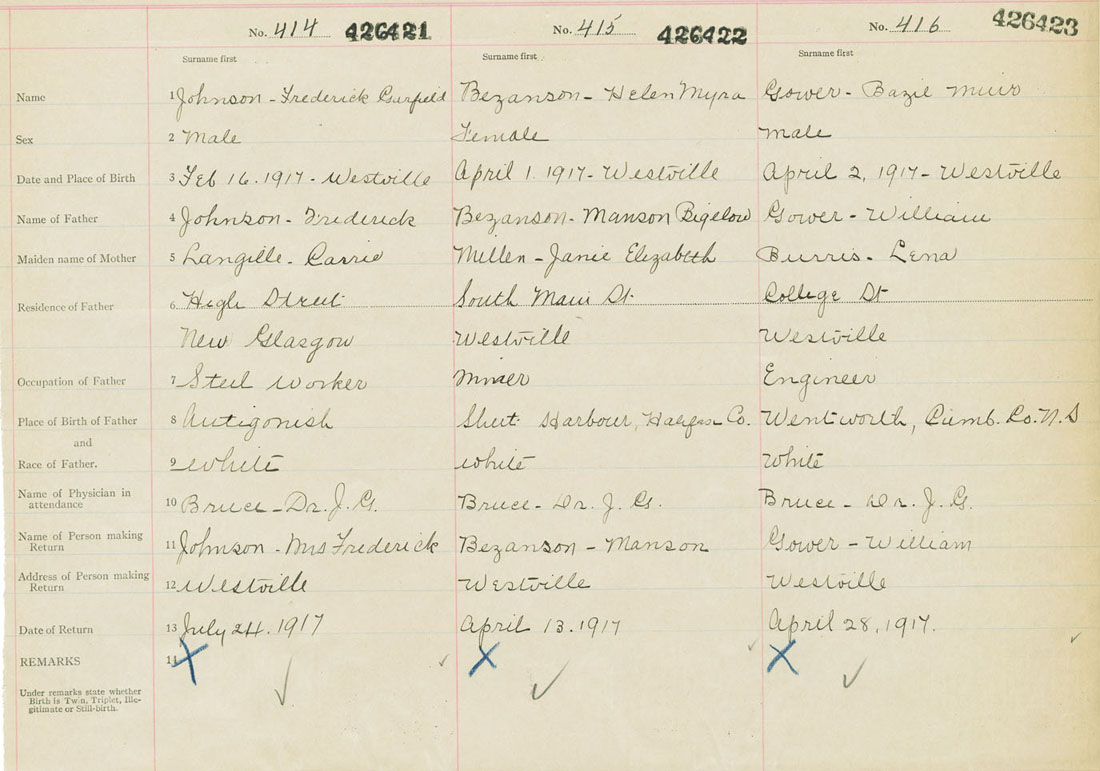 No. 414 426421 No. 415 426422 No. 416 426423
Surname first Surname first Surname first
Name 1 Johnson - Frederick Garfield Bezanson - Helen Myra Gower - Bazil Muir
Sex 2 Male Female Male
Date and Place of Birth 3 Feb 16. 1917 - Westville April 1 1917 - Westville April 2, 1917 - Westville
Name of Father 4 Johnson - Frederick Bezanson - Manson Bigelow Gower - William
Maiden name of Mother 5 Langille - Carrie Millen - Janie Elizabeth Burris - Lena
Residence of Father 6 High Street South Main St. College St
New Glasgow Westville Westville
Occupation of Father 7 Steel Worker Miner Engineer
Place of Birth of Father 8 Antigonish Sheet Harbour, Halifax Co. Wentworth, Cumb. Co. N.S
and
Race of Father. 9 White White White
Name of Physician in
attendance 10 Bruce - Dr. J. G. Bruce - Dr. J. G. Bruce - Dr. J. G.
Name of Person making
Return 11 Johnson - Mrs Frederick Bezanson - Manson Gower - William
Address of Person making
Return 12 Westville Westville Westville
Date of Return 13 July 24. 1917 April 13. 1917 April 28, 1917.
REMARKS 14 X X X
Under remarks state whether
Birth is Twin, Triplet, Ille-
gitimate or Still-birth.